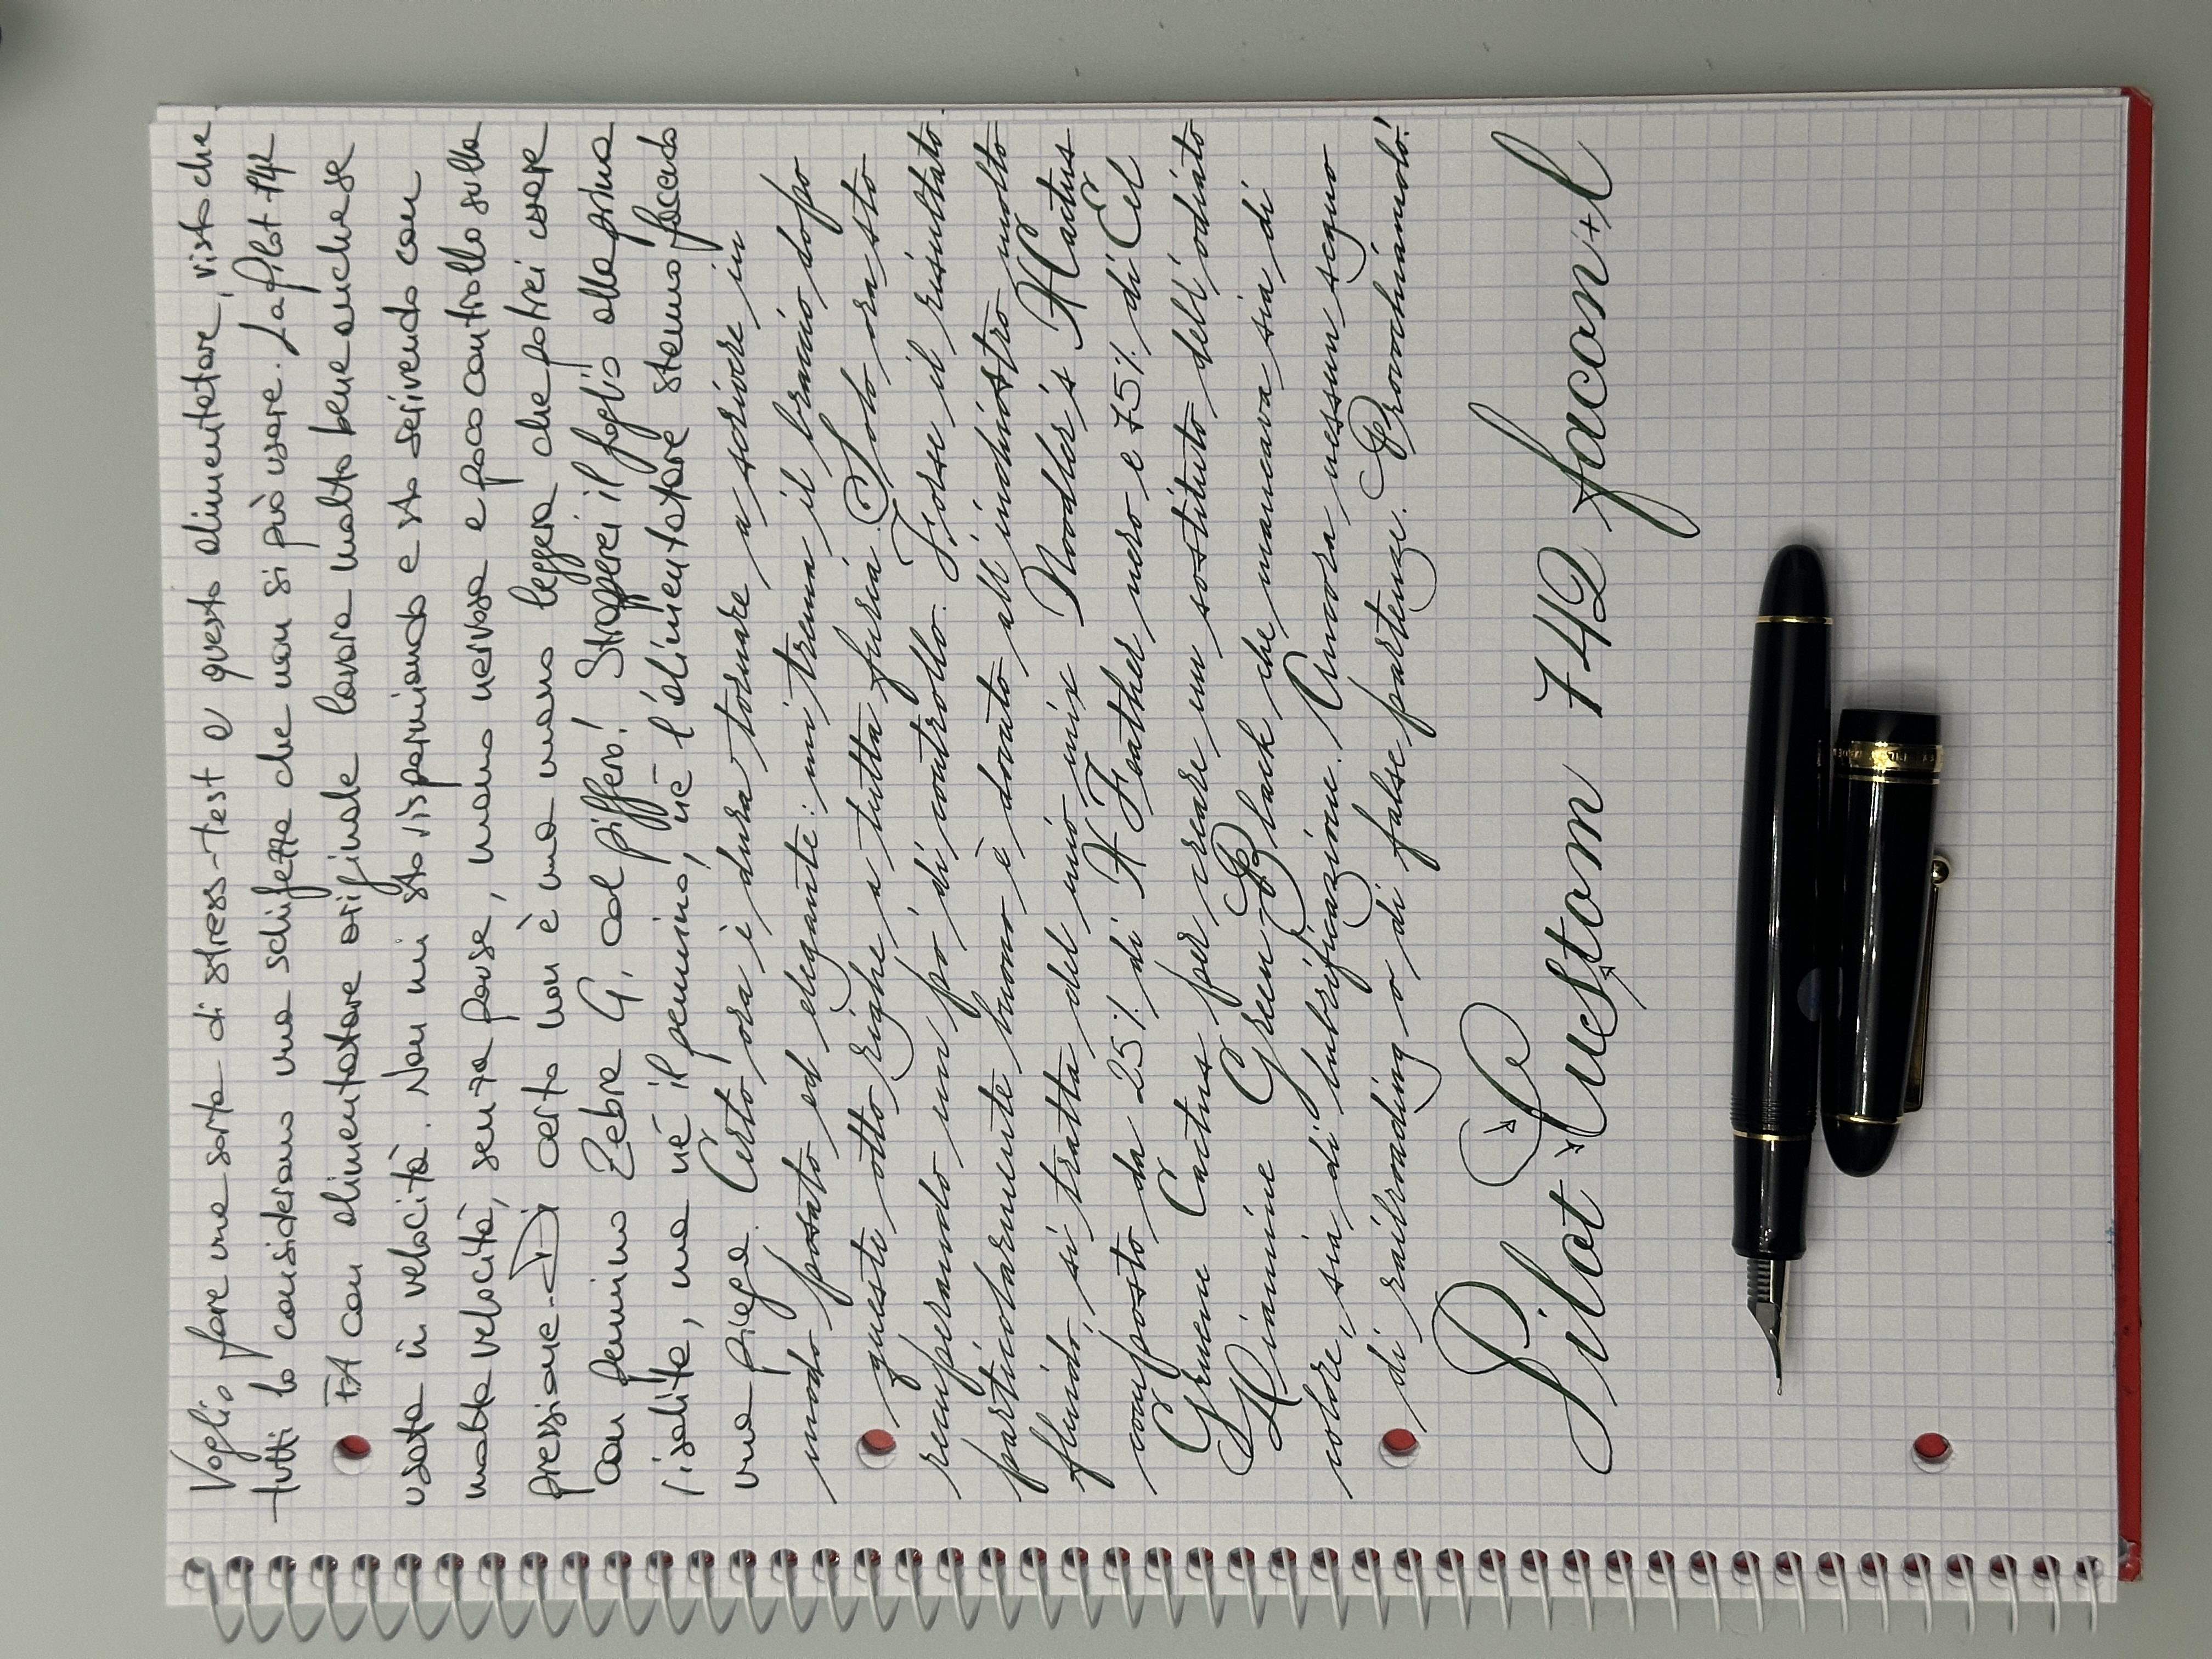 Voglio fare una sorta di stress-test a questo alimentatore, visto che
tutti lo considerano una schifezza che non si può usare. La Pilot 742
FA con alimentatore originale lavora molto bene anche se
usata in velocità. Non mi sto risparmiando e sto scrivendo con
molta velocità, senza pause, mano nervosa e poco controllo sulla
pressione. Di certo non è una mano leggera che potrei usare
con pennino Zebra G, col piffero! Strapperei il foglio alla prima
risalita, ma né il pennino, né l'alimentatore stanno facendo
una piega. Certo ora è dura tornare a scrivere in
modo posato ed elegante: mi trema il braccio dopo
questi otto righe a tutta furia. Solo ora sto
recuperando un po' di controllo. Forse il risultato
particolarmente buono è dovuto all'inchiostro molto
fluido, si tratta del mio mix Noodler's X Cactus
composto da 25% di X Feather nero e 75% di Eel
Gruene Cactus per creare un sostituto dell'odiato
Diamine Green Black che mancava sia di
colore, sia di lubrificazione. Ancora nessun segno
di railroading o di false partenze. Provochiamolo!
Pilot Custom 742 facon